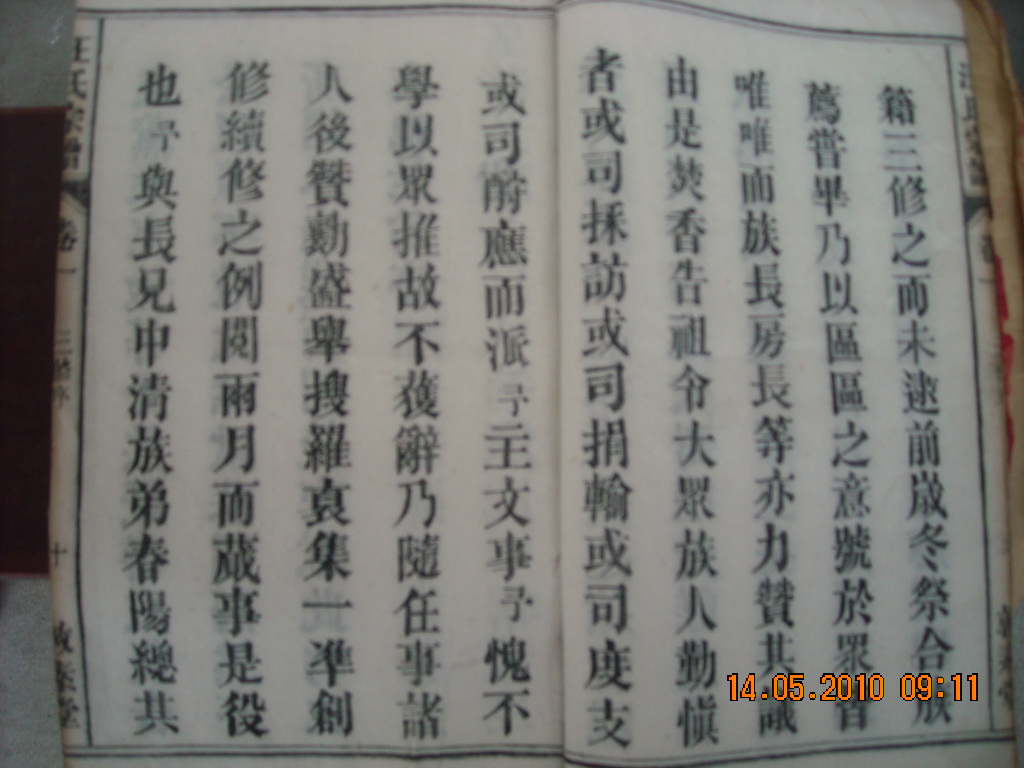 籍三修之而未逮前嵗冬祭合族
薦嘗畢乃以區區之意號於眾皆
唯唯而族長房長等亦力贊其議
由是焚香告祖令大眾族人勤慎
者或司採訪或司捐輸或司度支
或司酧應而派予主文事予愧不
學以眾推故不獲辭乃隨任事諸
人後贊勷盛舉搜羅裒集一凖創
修續修之例閱兩月而蕆事是役
也予與長兄申清族弟春陽總其
汪氏宗譜 卷一 三修序 十 敦本堂
14.05.2010 09:11